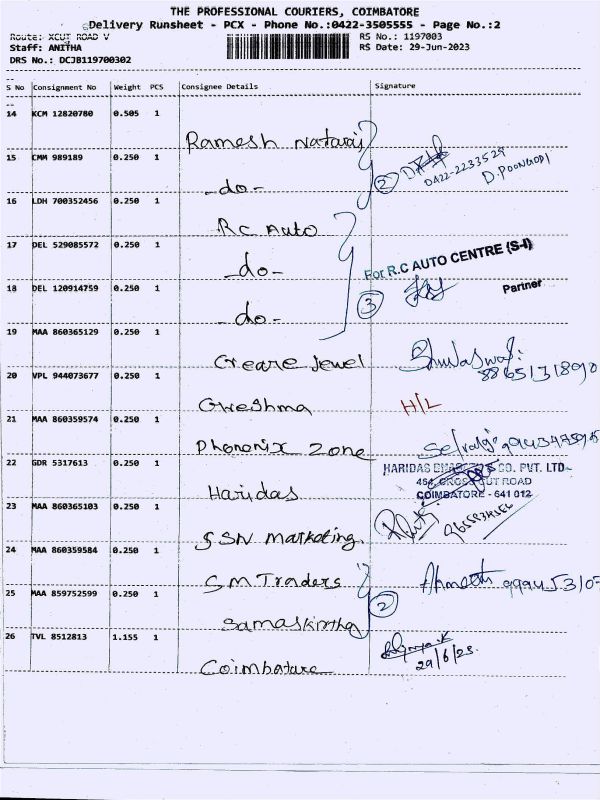 THE PROFESSIONAL COURIERS, COIMBATORE
Delivery Runsheet - PCX - Phone No.:0422-3505555 - Page No.:2
Route: XCUT ROAD V
RS No.: 1197003
Staff: ANITHA
RS Date: 29-Jun-2023
DRS No.: DCJB119700302
S No Consignment No Weight PCS Consignee Details Signature
14 KCM 12820780 0.505 1 Ramesh Nataraj
15 CMM 989189 0.250 1 -do-
2 0422-2233529
D.POONGODI
16 LDH 700352456 0.250 1 RC Auto
17 DEL 529085572 0.250 1 -do-
For R.C AUTO CENTRE (S-I)
18 DEL 120914759 0.250 1 -do-
3 Partner
19 MAA 860365129 0.250 1 Creare Jewel
20 VPL 944073677 0.250 1 Greshma H/L
21 MAA 860359574 0.250 1 Phononix Zone
22 GDR 5317613 0.250 1 Haridas
HARIDAS CO. PVT. LTD
454, CROSS CUT ROAD
COIMBATORE - 641 012
23 MAA 860365103 0.250 1 SSN Marketing
24 MAA 860359584 0.250 1 SM Traders
25 MAA 859752599 0.250 1
2
26 TVL 8512813 1.155 1 Coimbatore
29/6/23